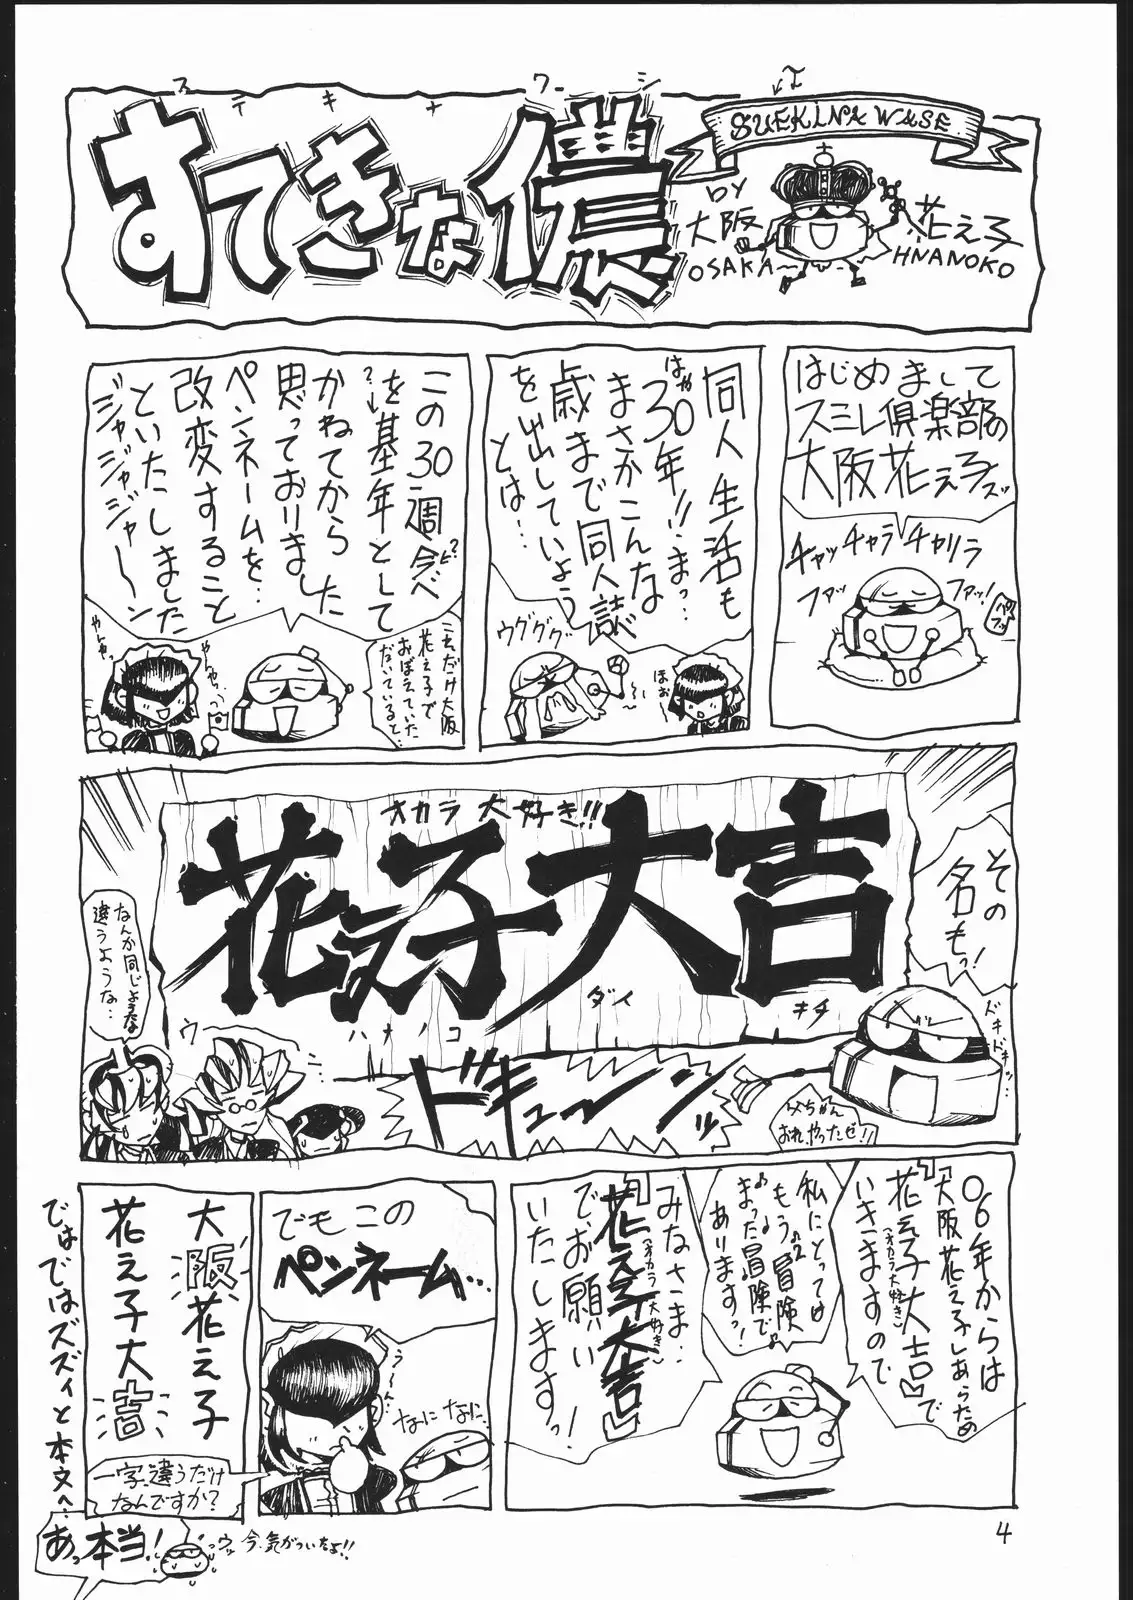 ステキナワシ
すてきな儂
SUEKINA WASE
BY
大阪
花え子
OSAKA
HNANOKO
はじめまして
スミレ倶楽部の
大阪花え子ズ
チャッチャラチャリラ
ファッ
ファッ!
同人生活も
はや30年!!まっ…
まさかこんな
歳まで同人誌
を出していよう
とは…
ウグググ
ほお
この30週今べ
を基年として
かねてから
思っておりました
ペンネームを…
改変すること
といたしました
ジャジャジャジャ〜ン
これだけ大阪
花え子で
おぼえていた
だいていると…
やんややんやっ
その
名もっ!
オカラ大好き!!
花え子大吉
ハナノコ
ダイ
キチ
なんか同じような
違うような…
ウ
ニ…
ドキューーンッ
ドキドキッ…
父ちゃん
おれ、やったぜ!!
06年からは
『大阪花え子』あらため
『花え子大吉』で
(オカラ大好き)
いきますので
私にとっては
もう冒険
まった冒険で
ありますっ!
みなさま…
『花え子大吉』
(オカラ大好き)
でお願い
いたしますっ!
でもこの
ペンネーム…
う〜ん…
なになに
大阪花え子
花え子大吉
一字違うだけ
なんですか?
ではではズズィと本文へ…
あっ本当!
ウッ今、気がついたよ!!
4